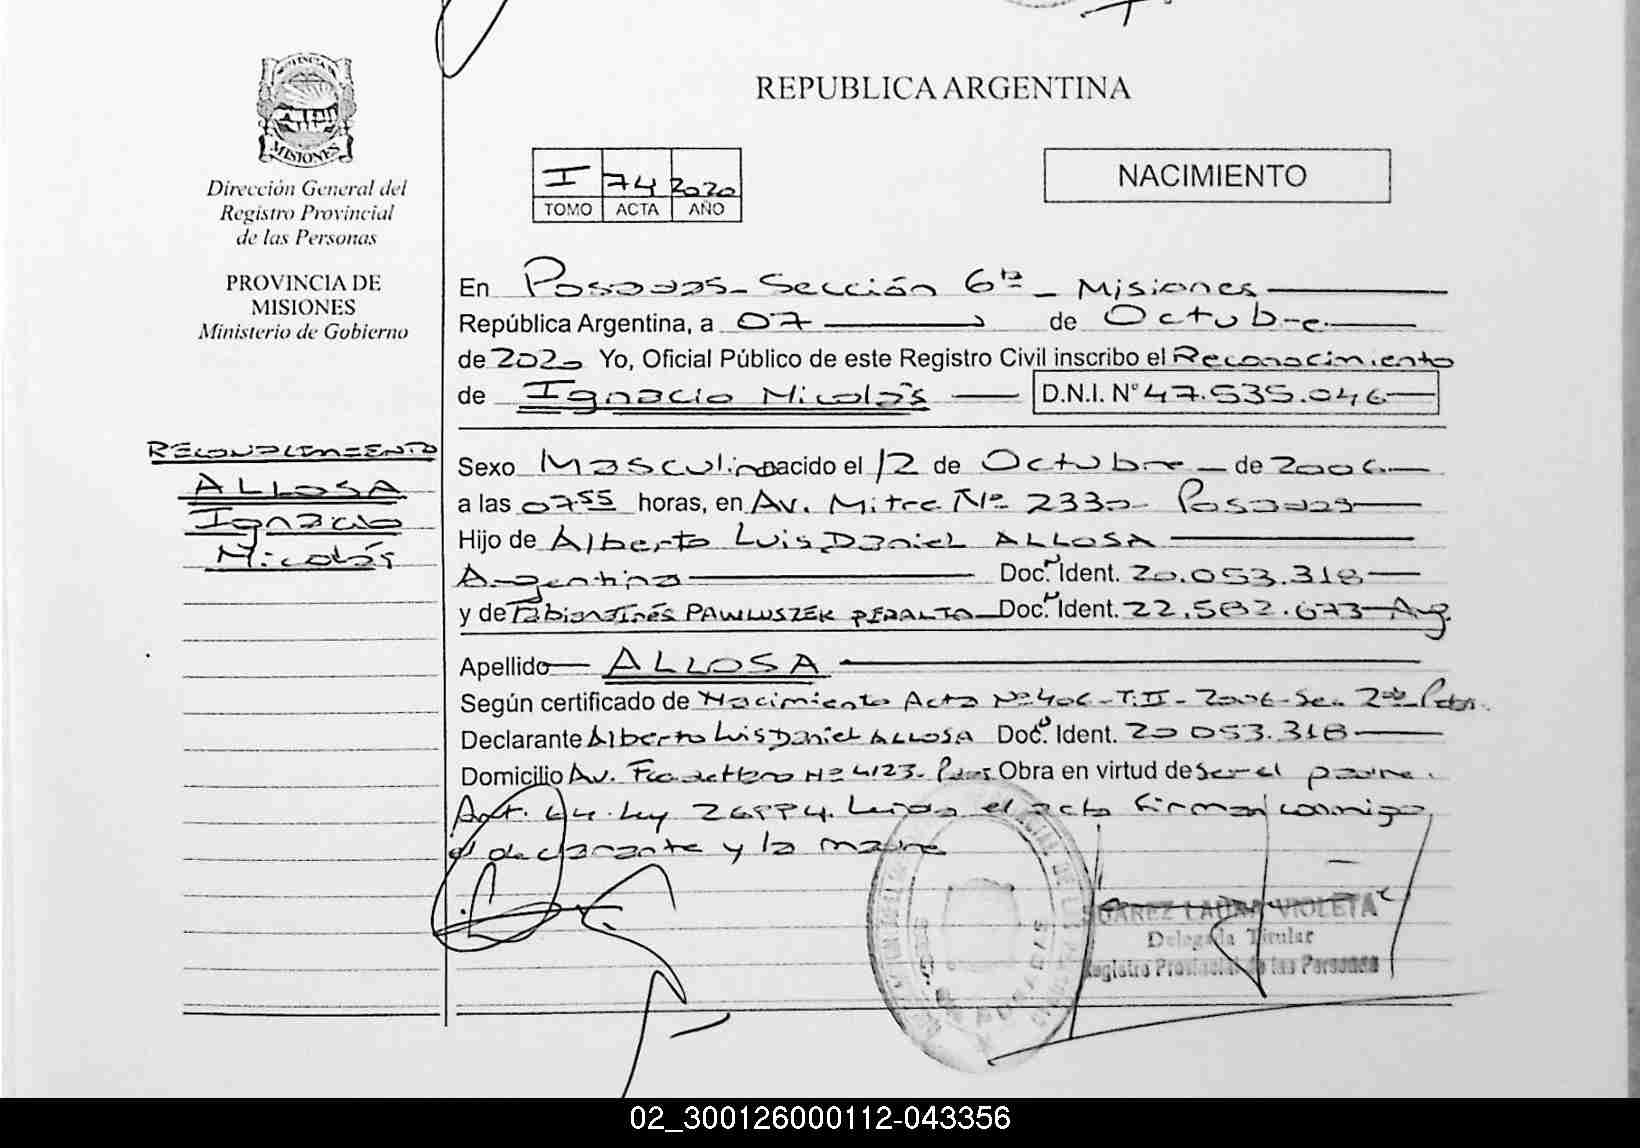 PROVINCIA DE
MISIONES
Dirección General del
Registro Provincial
de las Personas
PROVINCIA DE
MISIONES
Ministerio de Gobierno
RECONOCIMIENTO
ALLOSA
Ignacio
Nicolás
REPUBLICA ARGENTINA
I 74 2020
TOMO ACTA AÑO
NACIMIENTO
En Posadas - Sección 6ta - Misiones
República Argentina, a 07 de Octubre
de 2020 Yo, Oficial Público de este Registro Civil inscribo el Reconocimiento
de Ignacio Nicolás D.N.I. N° 47.535.046
Sexo Masculino nacido el 12 de Octubre de 2006
a las 0755 horas, en Av. Mitre Nº 2330 Posadas
Hijo de Alberto Luis Daniel ALLOSA
Argentina Doc. Ident. 20.053.318
y de Fabiana Inés PAWLUSZEK PERALTA Doc. Ident. 22.582.673 Arg
Apellido ALLOSA
Según certificado de Nacimiento Acta Nº 406 - T. II - 2006 - Sec. 2da
Declarante Alberto Luis Daniel ALLOSA Doc. Ident. 20 053.318
Domicilio Av. Nº 4123. Obra en virtud de ser el padre.
Art. 64. Ley 26994. Leída el acta firman conmigo
el declarante y la madre
SUAREZ LAURA VIOLETA
Delegada Titular
Registro Provincial de las Personas
02_300126000112-043356